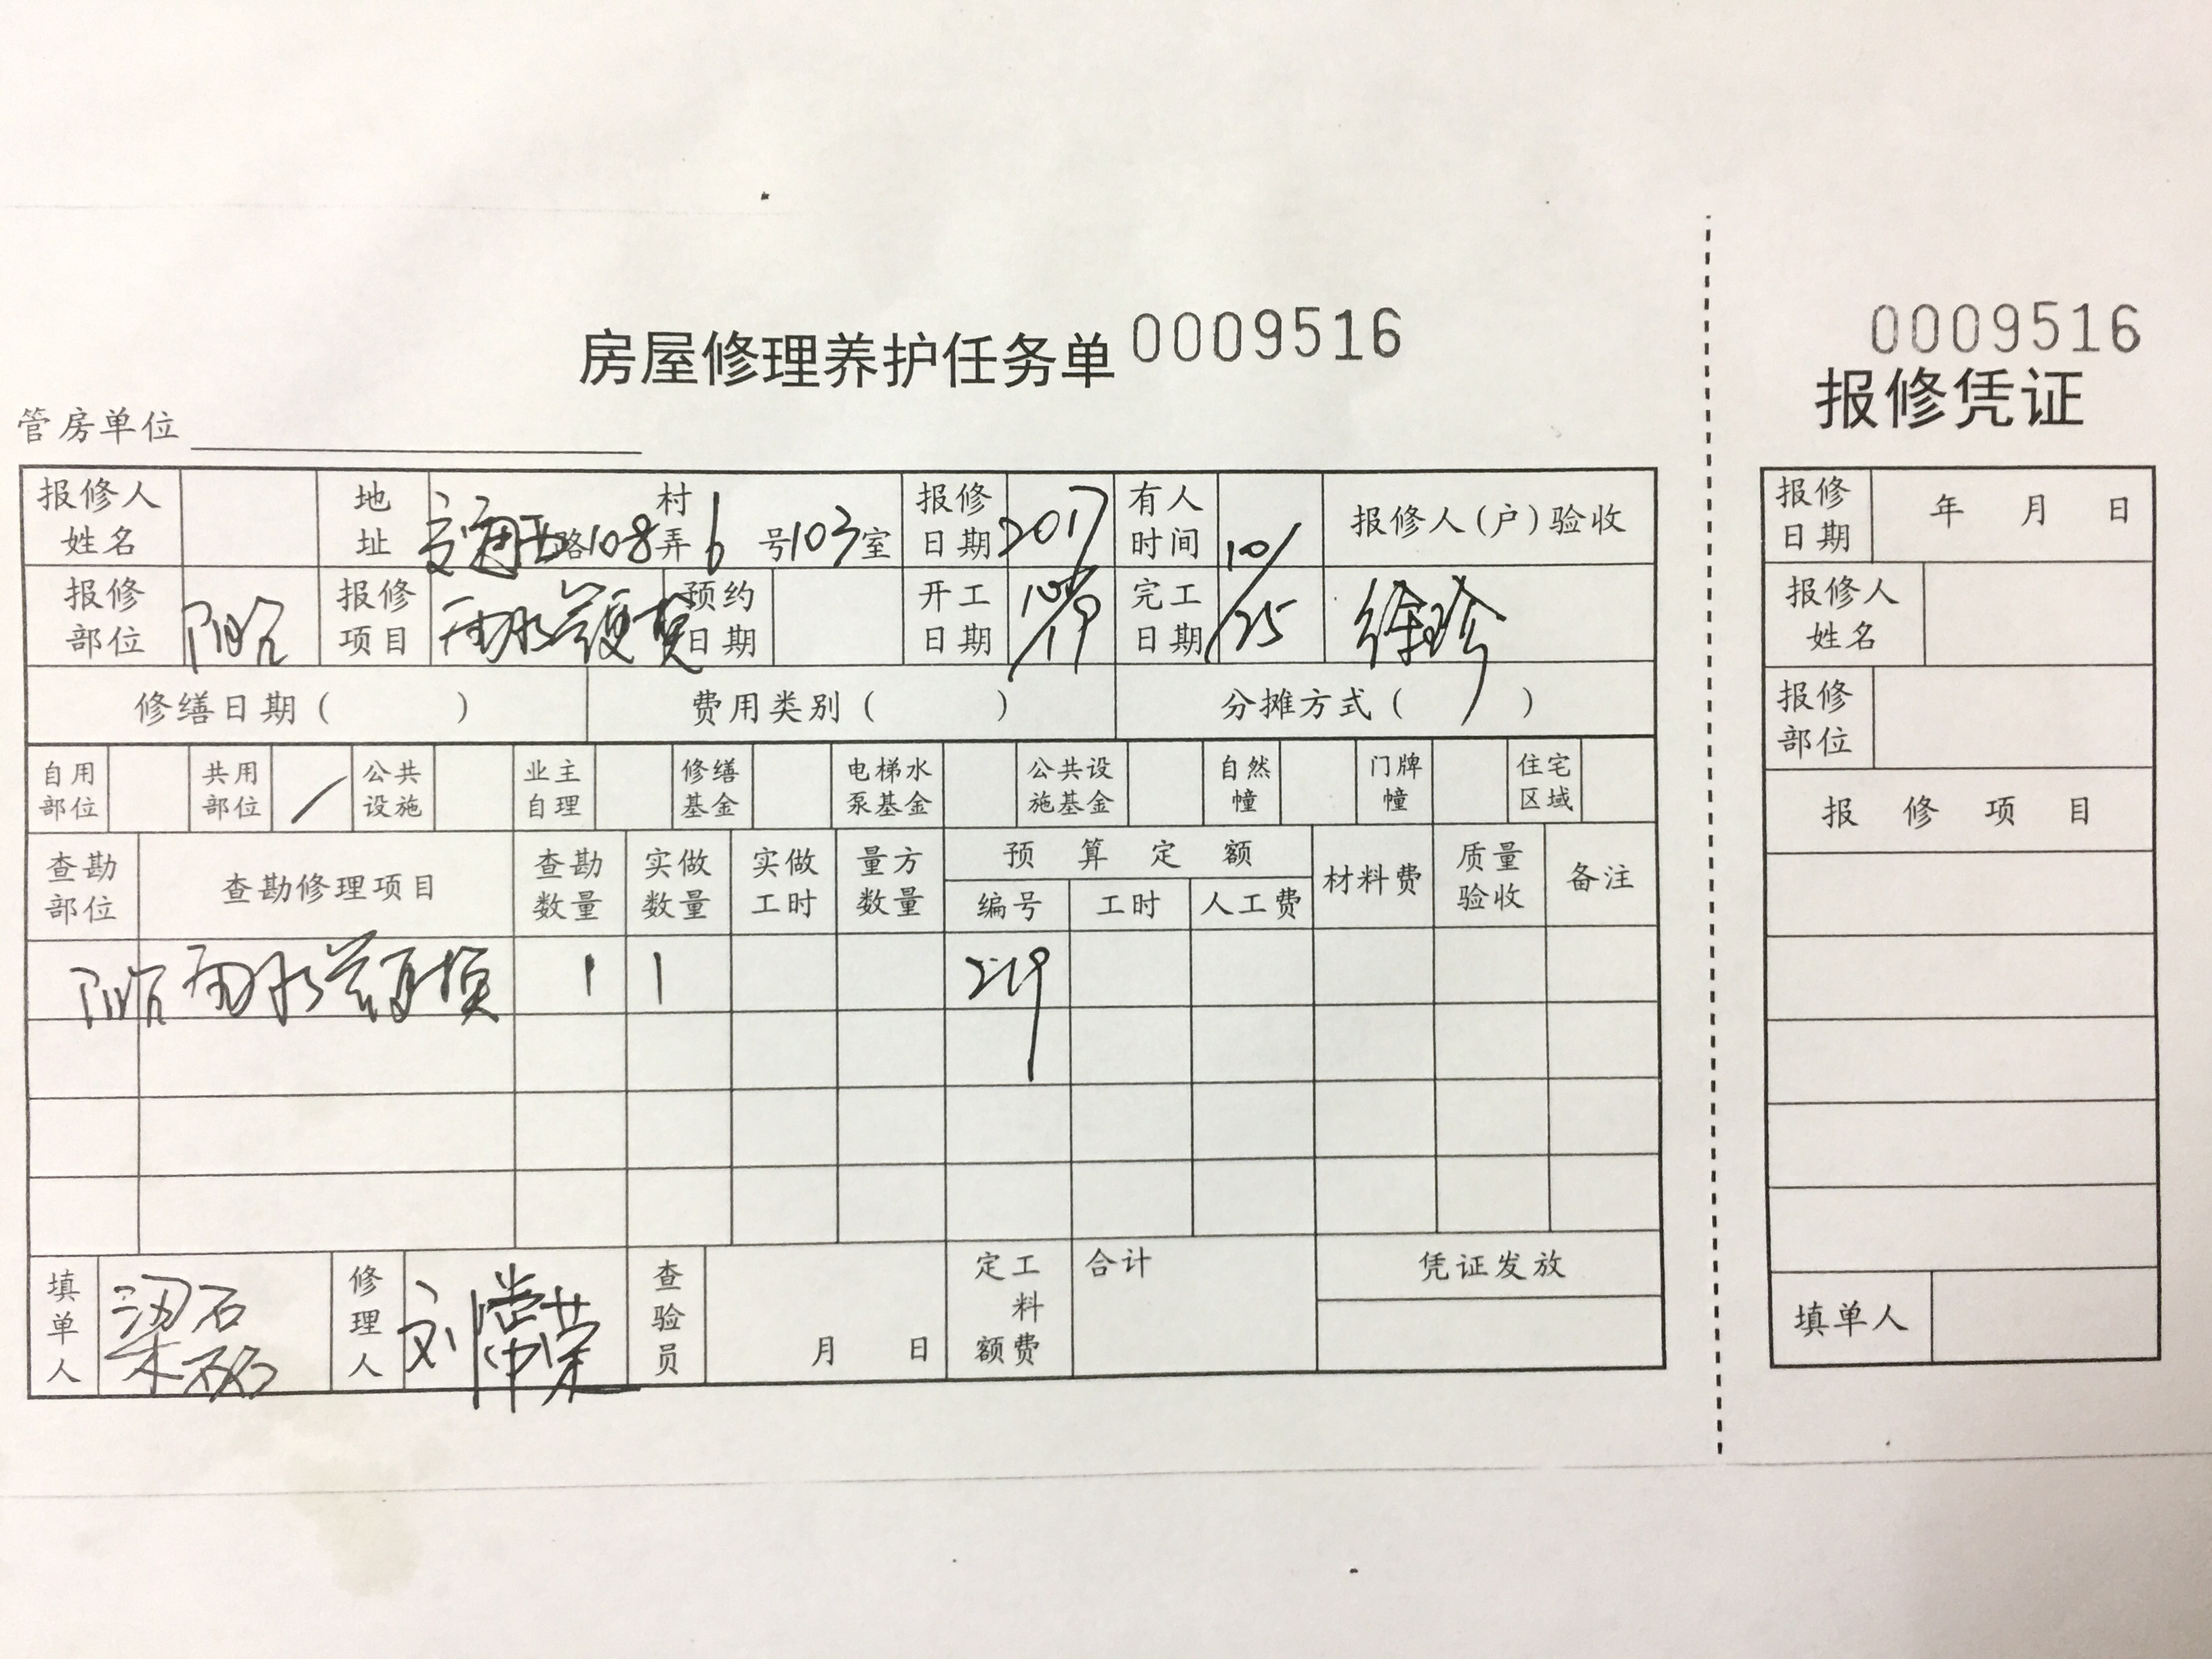 房屋修理养护任务单 0009516
管房单位
报修人姓名 地址 交通西路108村弄6号103室 报修日期 2017 有人时间 报修人(户)验收
报修部位 阳台 报修项目 雨水 预约日期 开工日期 10/19 完工日期 10/25 徐珍
修缮日期( ) 费用类别( ) 分摊方式( )
自用部位 共用部位 / 公共设施 业主自理 修缮基金 电梯水泵基金 公共设施基金 自然幢 门牌幢 住宅区域
查勘部位 查勘修理项目 查勘数量 实做数量 实做工时 量方数量 预算定额 材料费 质量验收 备注
编号 工时 人工费
阳台 雨水 1 1 219
填单人 梁 修理人 刘 荣 查验员 月 日 定额工料费 合计 凭证发放
0009516
报修凭证
报修日期 年 月 日
报修人姓名
报修部位
报修项目
填单人